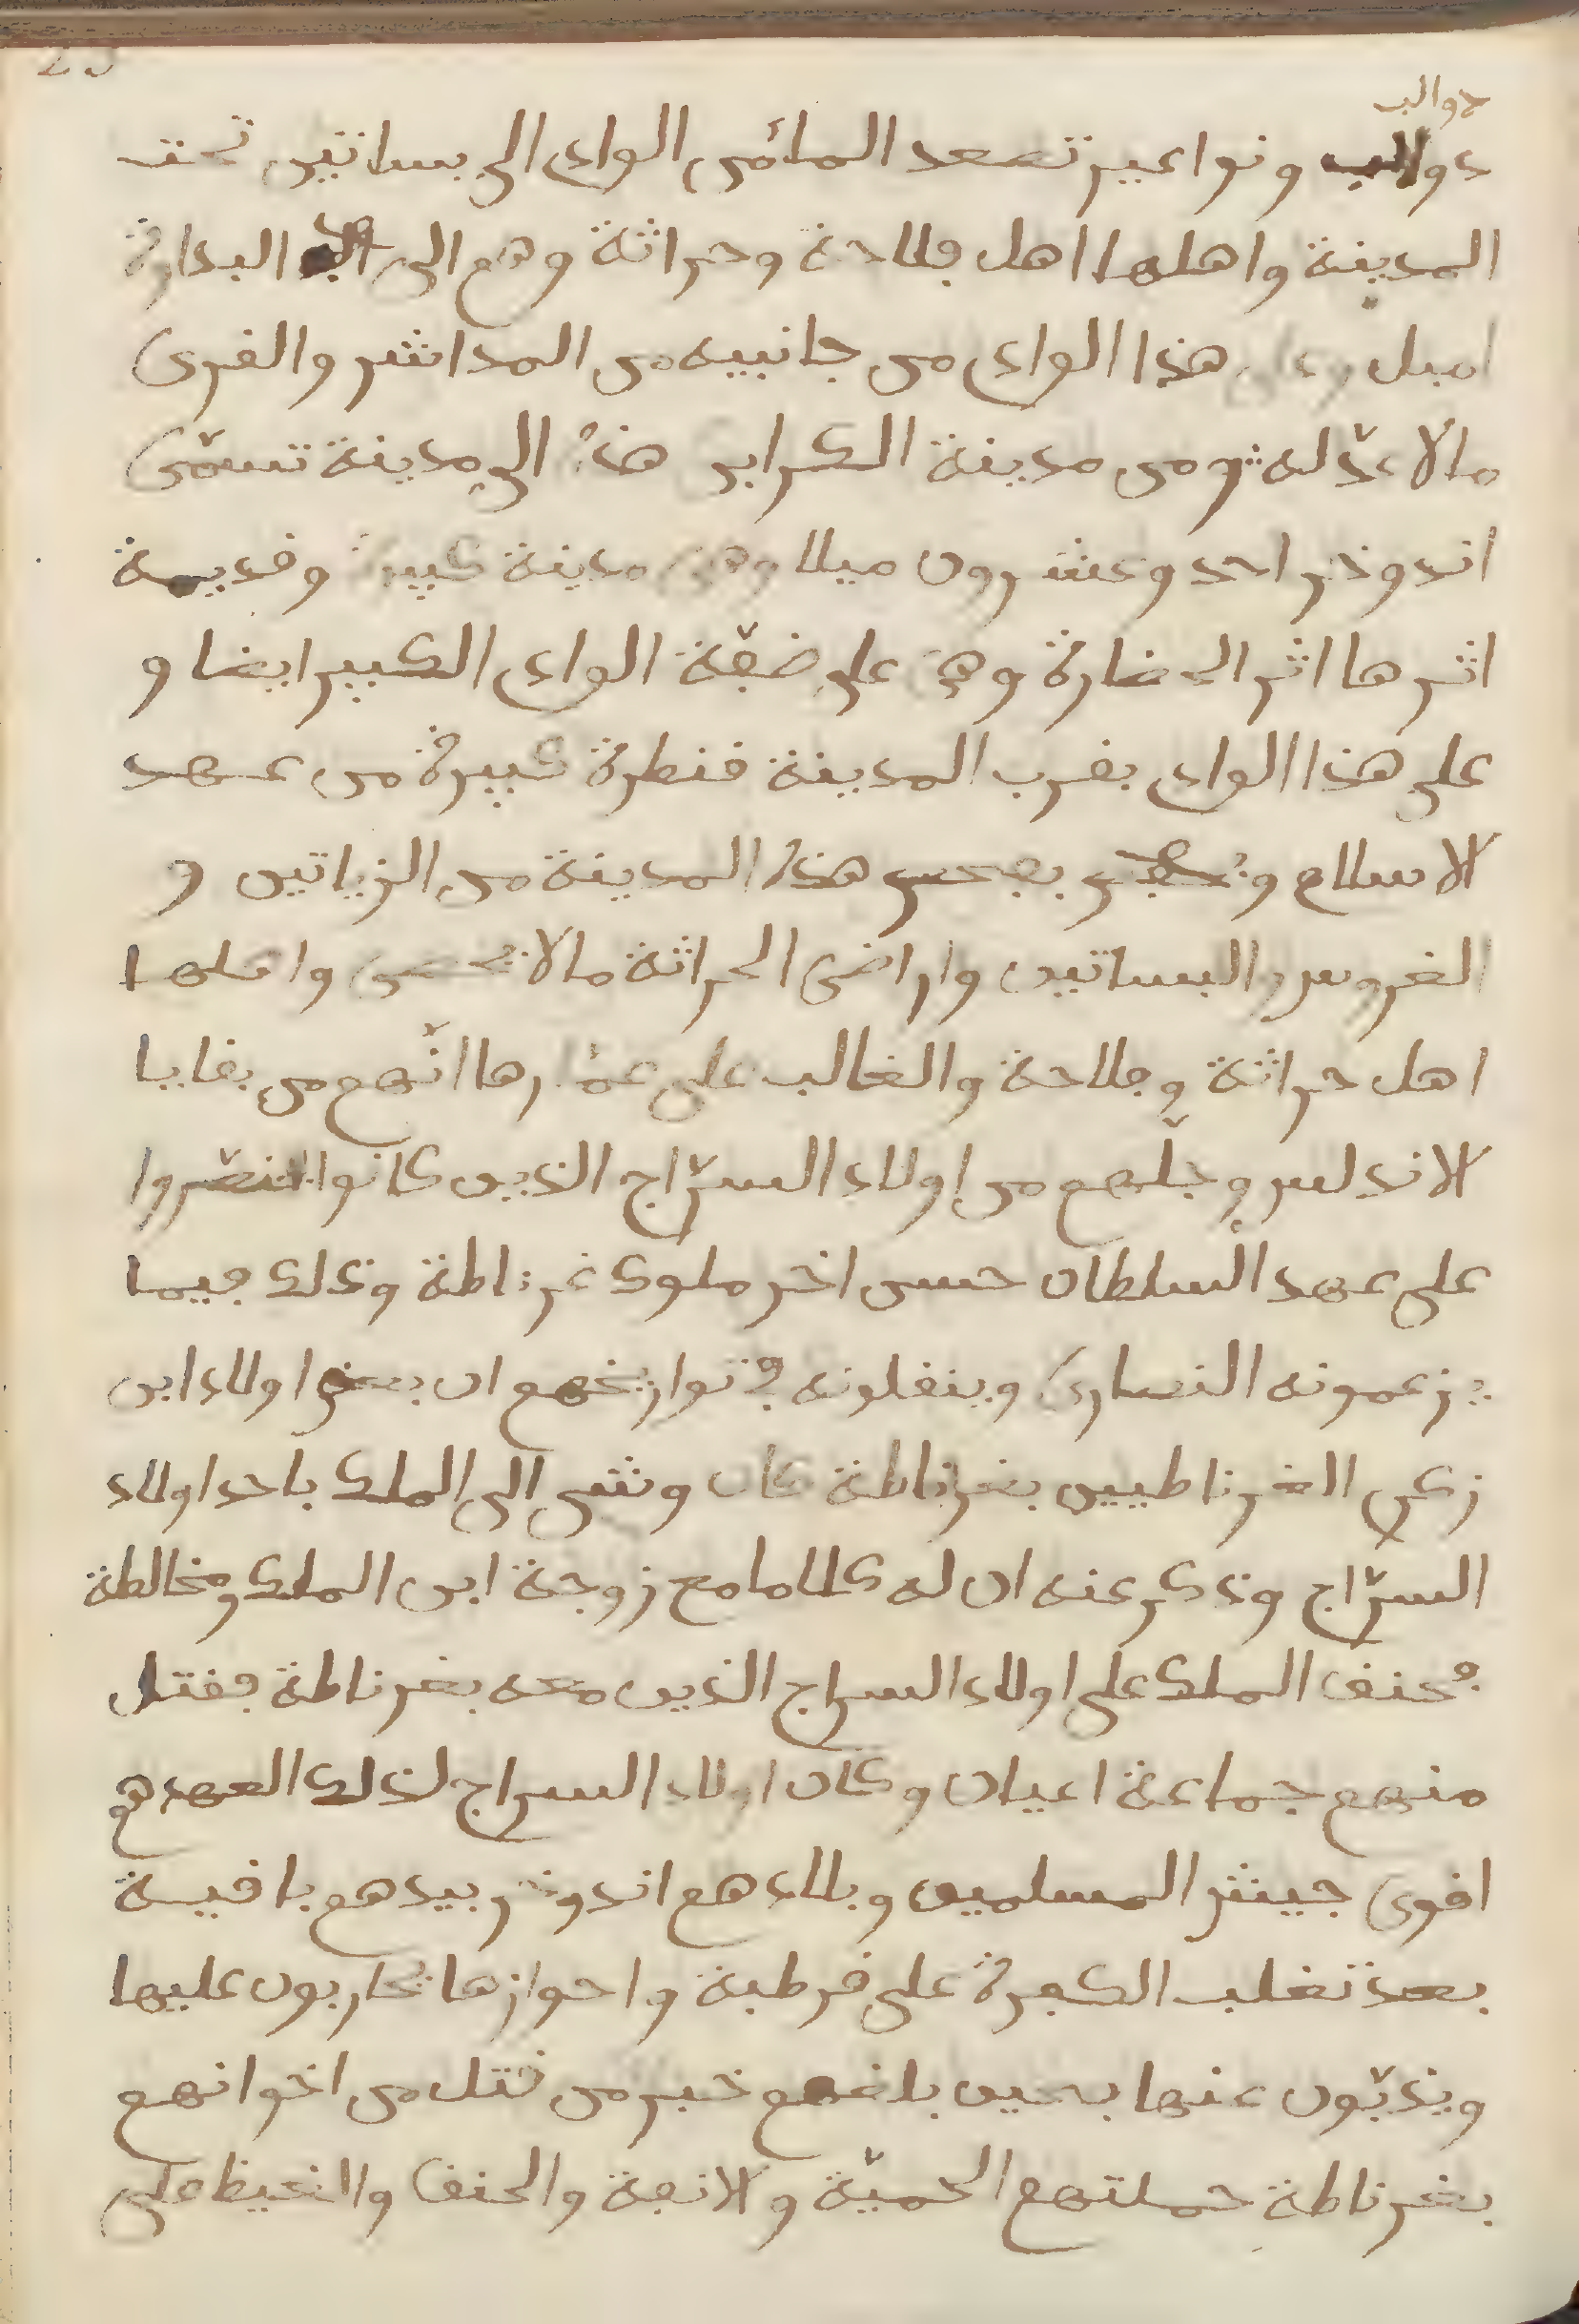 دوالب
دوالب ونواعير تصعد الماء من الواد الى بساتين تحت
المدينة واهلها اهل فلاحة وحراثة وهم الى البداوة
اميل وعلى هذا الواد من جانبيه من المداشر والقرى
مالا عدّ له ومن مدينة الكرابى هذه الى مدينة تسمّى
اندوخر احد وعشرون ميلا وهى مدينة كبيرة وقديمة
اثرها اثر الحضارة وهى على ضفّة الواد الكبير ايضا و
على هذا الواد بقرب المدينة قنطرة كبيرة من عهد
الاسلام و بفحص هذه المدينة من الزياتين و
الغروس والبساتين واراضى الحراثة مالا يحصى واهلها
اهل حراثة وفلاحة والغالب على عمّارها انّهم من بقايا
الاندلس وجلّهم من اولاد السرّاج الذين كانوا تنصّروا
على عهد السلطان حسن اخر ملوك غرناطة وذلك فيما
يزعمونه النصارى وينقلونه فى تواريخهم ان بعض اولاد ابن
زكرى الغرناطيين بغرناطة كان وشى الى الملك باحد اولاد
السرّاج وذكر عنه ان له كلاما مع زوجة ابن الملك ومخالطة
فحنق الملك على اولاد السراج الذين معه بغرناطة فقتل
منهم جماعة اعيان وكان اولاد السراج لذلك العهد هم
اقوى جيش المسلمين وبلادهم اندوخر بيدهم باقية
بعد تغلب الكفرة على قرطبة واحوازها يحاربون عليها
ويذبّون عنها فحين بلغهم خبر من قتل من اخوانهم
بغرناطة حملتهم الحميّة والانفة والحنق والغيظ على